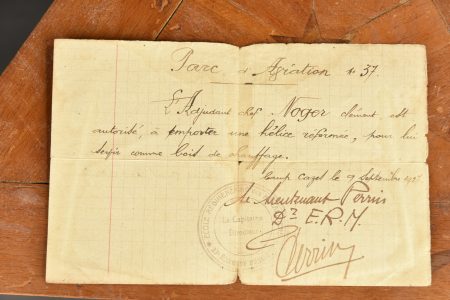 Parc d'Aviation n° 37
L'Adjudant chef Noger clément est
autorisé, à emporter une hélice réformée, pour lui
servir comme bois de chauffage.
Camp Cazot le 9 Septembre
Le Lieutenant Perrin
D. E.R.M.
Perrin
Le Capitaine
Directeur